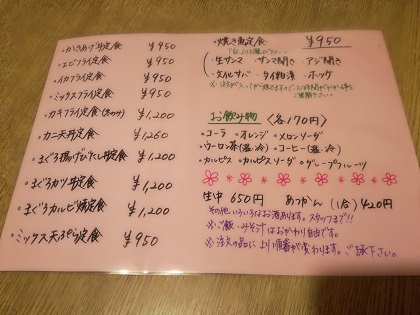 ・かきあげ丼定食 ¥950
・エビフライ定食 ¥950
・イカフライ定食 ¥950
・ミックスフライ定食 ¥950
・カキフライ定食 ¥1,200
・カニ天丼定食 ¥1,260
・まぐろ揚げびたし丼定食 ¥1,200
・まぐろカツ丼定食 ¥1,200
・まぐろカルビ焼定食 ¥1,200
・ミックス天ぷら定食 ¥950
・焼き魚定食 ¥950
・生サンマ ・サンマ開き ・アジ開き
・文化サバ ・タイ粕漬 ・ホッケ
お飲み物 <各170円>
・コーラ ・オレンジ ・メロンソーダ
・ウーロン茶(温・冷) ・コーヒー(温・冷)
・カルピス ・カルピスソーダ ・グレープフルーツ
生中 650円 あつかん (1合) 420円
その他いろいろなお酒あります。スタッフまで!!
※ご飯・みそ汁はおかわり自由です。
※注文の品により順番が変わります。ご了承下さい。